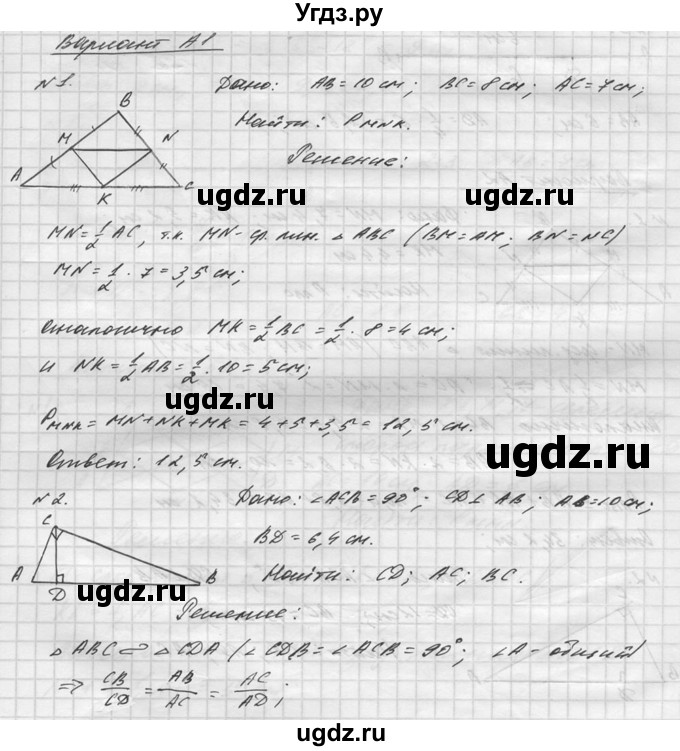 Угдз.ру
Вариант А1
N 1.
Дано: AB = 10 см; BC = 8 см; AC = 7 см;
Найти: P MNK.
Решение:
B
M
N
A
K
C
ugdz.ru
ugdz.ru
MN = 1/2 AC, т.к. MN - ср. лин. △ ABC (BM = AM; BN = NC)
MN = 1/2 · 7 = 3,5 см;
ugdz.ru
аналогично MK = 1/2 BC = 1/2 · 8 = 4 см;
и NK = 1/2 AB = 1/2 · 10 = 5 см;
ugdz.ru
P MNK = MN + NK + MK = 4 + 5 + 3,5 = 12,5 см.
ugdz.ru
Ответ: 12,5 см.
N 2.
Дано: ∠ACB = 90°; CD ⊥ AB; AB = 10 см;
BD = 6,4 см.
Найти: CD; AC; BC.
C
A
D
B
ugdz.ru
Решение:
ugdz.ru
△ ABC ∽ △ CDA (∠CDB = ∠ACB = 90°; ∠A - общий
⇒ CB/CD = AB/AC = AC/AD;
ugdz.ru